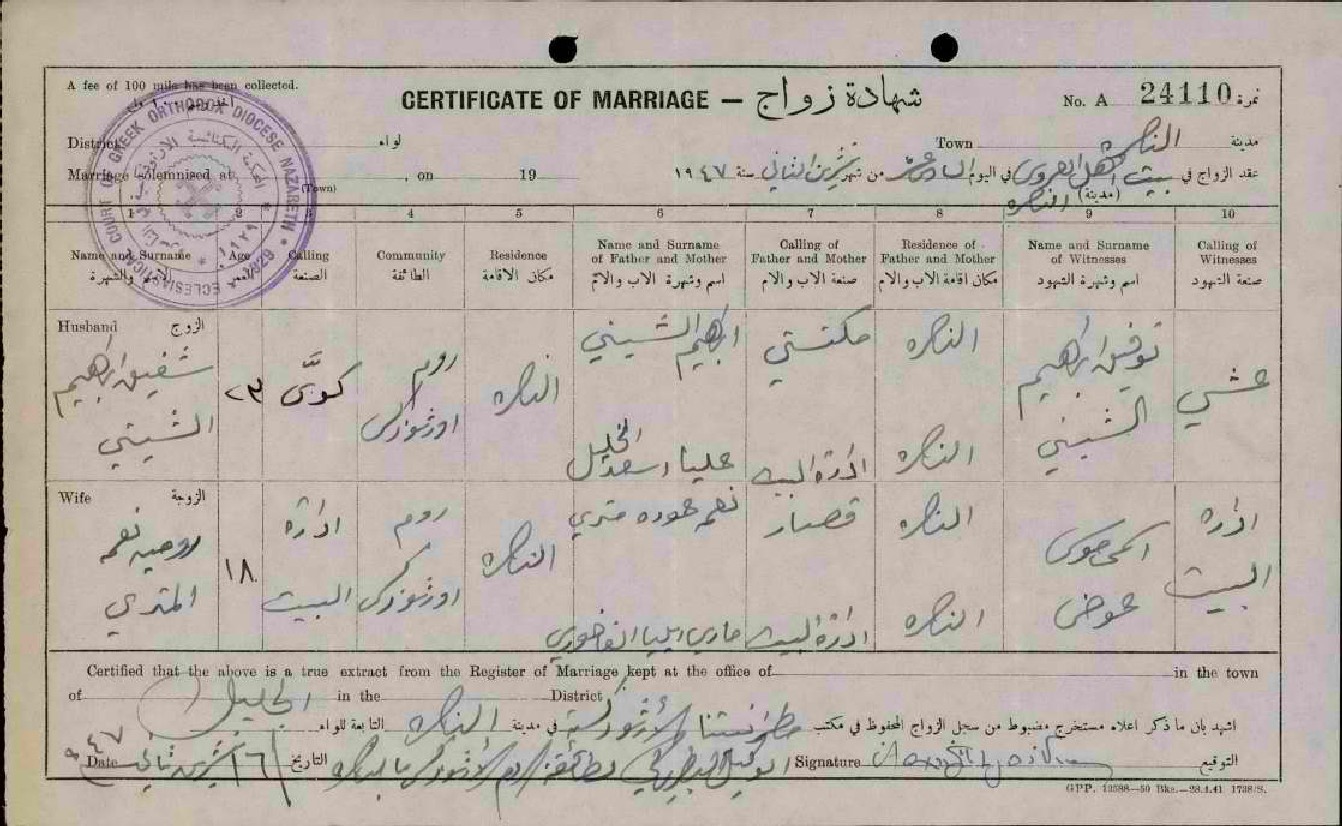 A fee of 100 mils has been collected.
CERTIFICATE OF MARRIAGE — شهادة زواج
No. A 24110 نمرة:
District لواء Town الناصرة مدينة
Marriage Solemnised at , on 19
(Town)
عقد الزواج في بيت اهل العروس في اليوم السادس عشر من شهر تشرين الثاني سنة ١٩٤٧
(مدينة) الناصرة
COURT OF GREEK ORTHODOX DIOCESE NAZARETH
1 2 3 4 5 6 7 8 9 10
Name and Surname الاسم والشهرة
Age العمر
Calling الصنعة
Community الطائفة
Residence مكان الاقامة
Name and Surname of Father and Mother اسم وشهرة الاب والام
Calling of Father and Mother صنعة الاب والام
Residence of Father and Mother مكان اقامة الاب والام
Name and Surname of Witnesses اسم وشهرة الشهود
Calling of Witnesses صنعة الشهود
Husband الزوج
شفيق ابراهيم الشيني
٢٣
كوى
روم اورثوذكس
الناصرة
ابراهيم الشيني
علياء اسعد الخليل
ادارة البيت
الناصرة
الناصرة
توفيق ابراهيم الشيني
Wife الزوجة
نعيم المتري
١٨
ادارة البيت
روم اورثوذكس
الناصرة
نعيم عوده متري
ماري ايليا الفاخوري
قصار
ادارة البيت
الناصرة
الناصرة
عوض
ادارة البيت
Certified that the above is a true extract from the Register of Marriage kept at the office of in the town
of in the District
اشهد بان ما ذكر اعلاه مستخرج مضبوط من سجل الزواج المحفوظ في مكتب في مدينة الناصرة التابعة للواء الجليل
Date ١٦ تشرين ثاني التاريخ
Signature التوقيع
GPP. 13588—50 Bks.—28.4.41 1738/S.